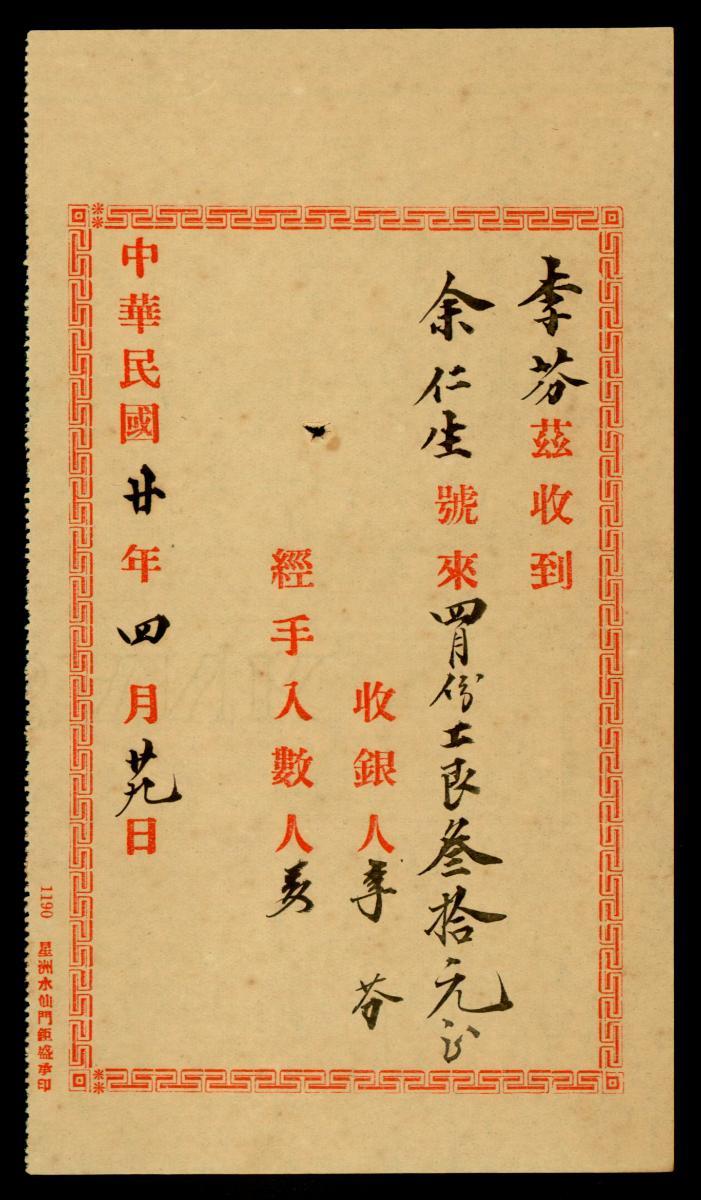 李芬茲收到
余仁生號來四月份工艮叁拾元
收銀人李芬
經手入數人
中華民國廿年四月廿九日
1190 星洲水仙門鉅盛承印